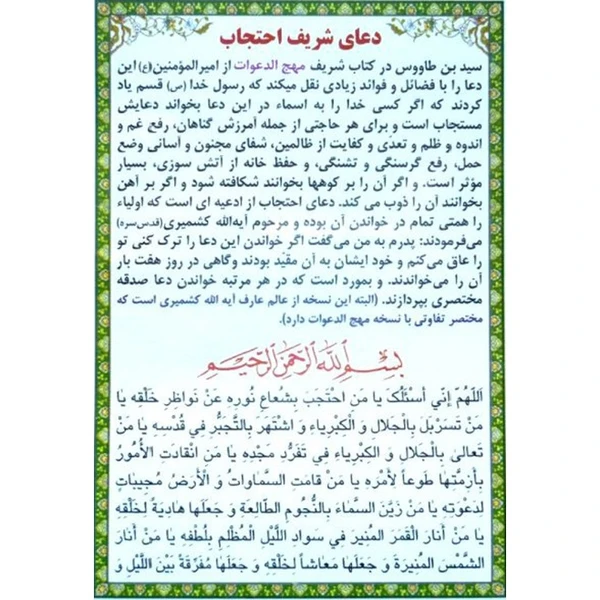 دعای شریف احتجاب
سید بن طاووس در کتاب شریف مهج الدعوات از امیرالمؤمنین(ع) این
دعا را با فضائل و فوائد زیادی نقل میکند که رسول خدا (ص) قسم یاد
کردند که اگر کسی خدا را به اسماء در این دعا بخواند دعایش
مستجاب است و برای هر حاجتی از جمله آمرزش گناهان، رفع غم و
اندوه و ظلم و تعدی و کفایت از ظالمین، شفای مجنون و آسانی وضع
حمل، رفع گرسنگی و تشنگی، و حفظ خانه از آتش سوزی، بسیار
مؤثر است. و اگر آن را بر کوهها بخوانند شکافته شود و اگر بر آهن
بخوانند آن را ذوب می کند. دعای احتجاب از ادعیه ای است که اولیاء
را همتی تمام در خواندن آن بوده و مرحوم آیه‌الله کشمیری(قدس‌سره)
می‌فرمودند: پدرم به من می‌گفت اگر خواندن این دعا را ترک کنی تو
را عاق می‌کنم و خود ایشان به آن مقیّد بودند وگاهی در روز هفت بار
آن را می‌خواندند. و بمورد است که در هر مرتبه خواندن دعا صدقه
مختصری بپردازند. (البته این نسخه از عالم عارف آیه الله کشمیری است که
مختصر تفاوتی با نسخه مهج الدعوات دارد).
بِسْمِ اللهِ الرَّحْمنِ الرَّحیمِ
اَللّهُمَّ اِنّي اَسْئَلُکَ يا مَنِ احْتَجَبَ بِشُعاعِ نُورِهِ عَنْ نَواظِرِ خَلْقِهِ يا
مَنْ تَسَرْبَلَ بِالْجَلالِ وَ الْکِبْرِياءِ وَ اشْتَهَرَ بِالتَّجَبُّرِ في قُدْسِهِ يا مَنْ
تَعالی بِالْجَلالِ وَ الْکِبْرِياءِ في تَفَرُّدِ مَجْدِهِ يا مَنِ انْقادَتِ الْأُمُورُ
بِأَزِمَّتِها طَوعاً لِأَمْرِهِ يا مَنْ قامَتِ السَّماواتُ وَ الْأَرْضُ مُجيباتٍ
لِدَعْوَتِهِ يا مَنْ زَيَّنَ السَّماءَ بِالنُّجُومِ الطّالِعَةِ وَ جَعَلَها هادِيَةً لِخَلْقِهِ
يا مَنْ أَنارَ الْقَمَرَ الْمُنيرَ في سَوادِ اللَّيْلِ الْمُظْلِمِ بِلُطْفِهِ يا مَنْ أَنارَ
الشَّمْسَ الْمُنيرَةَ وَ جَعَلَها مَعاشاً لِخَلْقِهِ وَ جَعَلَها مُفَرِّقَةً بَيْنَ اللَّيْلِ وَ